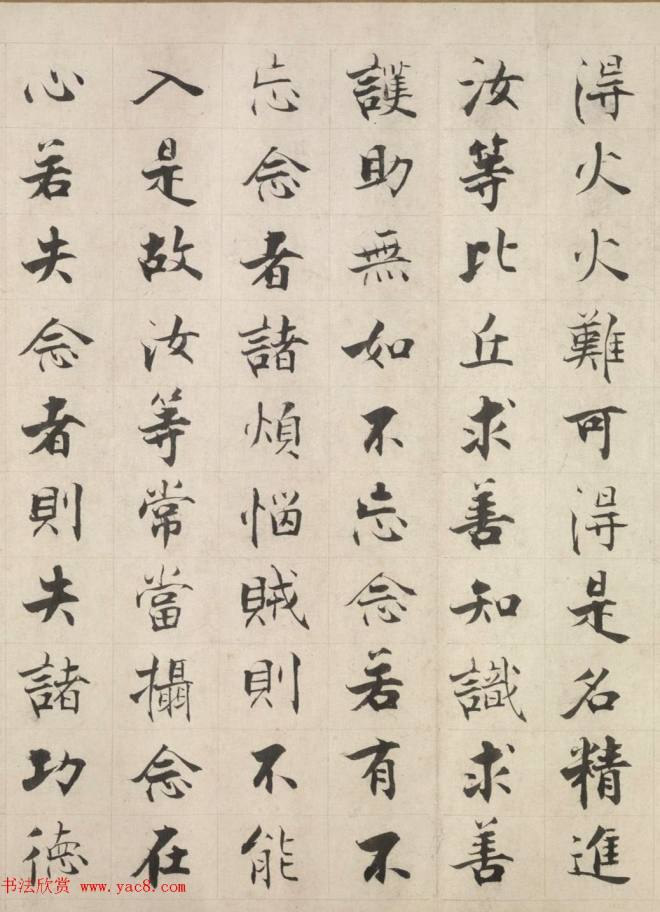 得火火難可得是名精進
汝等比丘求善知識求善
護助無如不忘念若有不
忘念者諸煩惱賊則不能
入是故汝等常當攝念在
心若失念者則失諸功德
书法欣赏 www.yac8.com